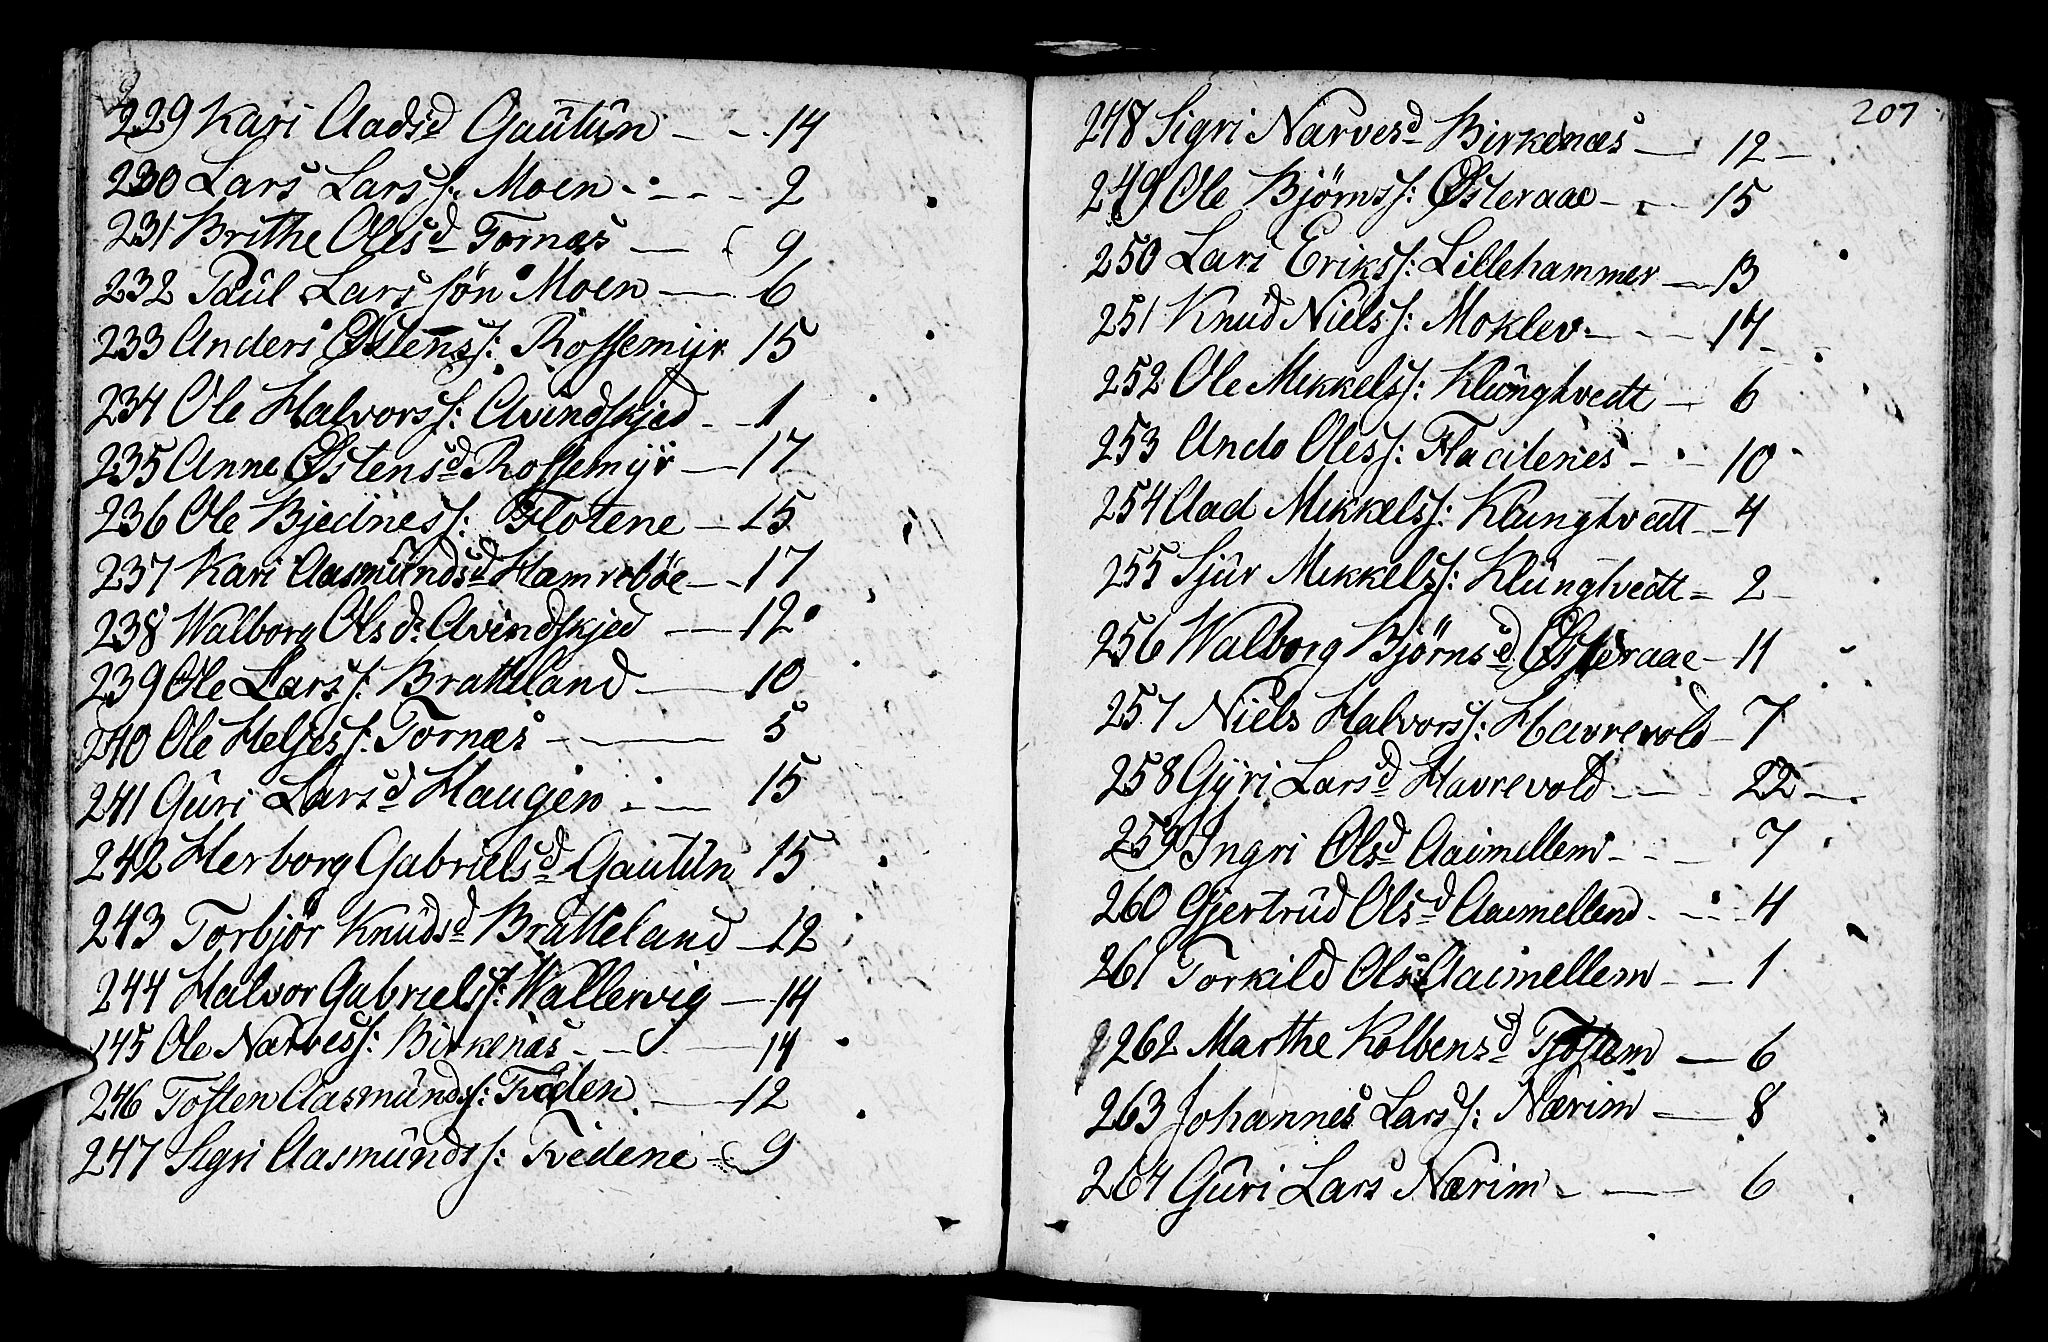 229 Kari Aadsd Gautûn - - . 14
230 Lars Larss: Moen - - - 2
231 Brithe Olesd Tornæs — 9
232 Paûl Larssön Moen — 6
233 Anders Østenss: Rossemijr 15
234 Ole Halvorss: Avindskjed - - 1
235 Anne Østensd Rossemÿr — 17
236 Ole Bjednes s: Flotene — 15
237 Kari Aasmûndsd Hamreböe - - 17
238 Walborg Olsd: Avindskjed — 12
239 Ole Larss: Bratteland — 10
240 Ole Heljess: Tornæs — 5
241 Gûri Larsd Haugen - — 15
242 Herborg Gabrielsd Gautûn 15
243 Torbjör Knûdsd Bratteland — 12
244 Halvor Gabrielss: Wallervig — 14
145 Ole Narvess: Birkenæs - - — 14
246 Tosten Aasmûnds: — 12
247 Sigri Aasmûndss: Tvedene - 9
207
248 Sigri Narvesd Birkenæs — 12 -
249 Ole Bjørnss: Østeraae - - — 15
250 Lars Erikss: Lillehammer — 13
251 Knûd Nielss: Moklev - - - 17
252 Ole Mikkelss: Klûngtvedt — 6
253 Oless: - - 10
254 Aad Mikkelss: Klungtvedt - 4
255 Sjûr Mikkelss: Klûngtvedt = 2 -
256 Walborg Bjørnsd Østeraae - 11
257 Niels Halvorss: Havrevold - 7
258 Gÿri Larsd Havrevold - — 22 -
259 Ingri Olsd Aaimellem - - - 7
260 Gjertrûd Olsd Aaimellem - - - 4
261 Torkild Olss: Aaimellem - - 1
262 Marthe Kolbensd Tjostem — 6
263 Johannes Larss: Nærim — 8
264 Gûri Lars Nærim - — 6